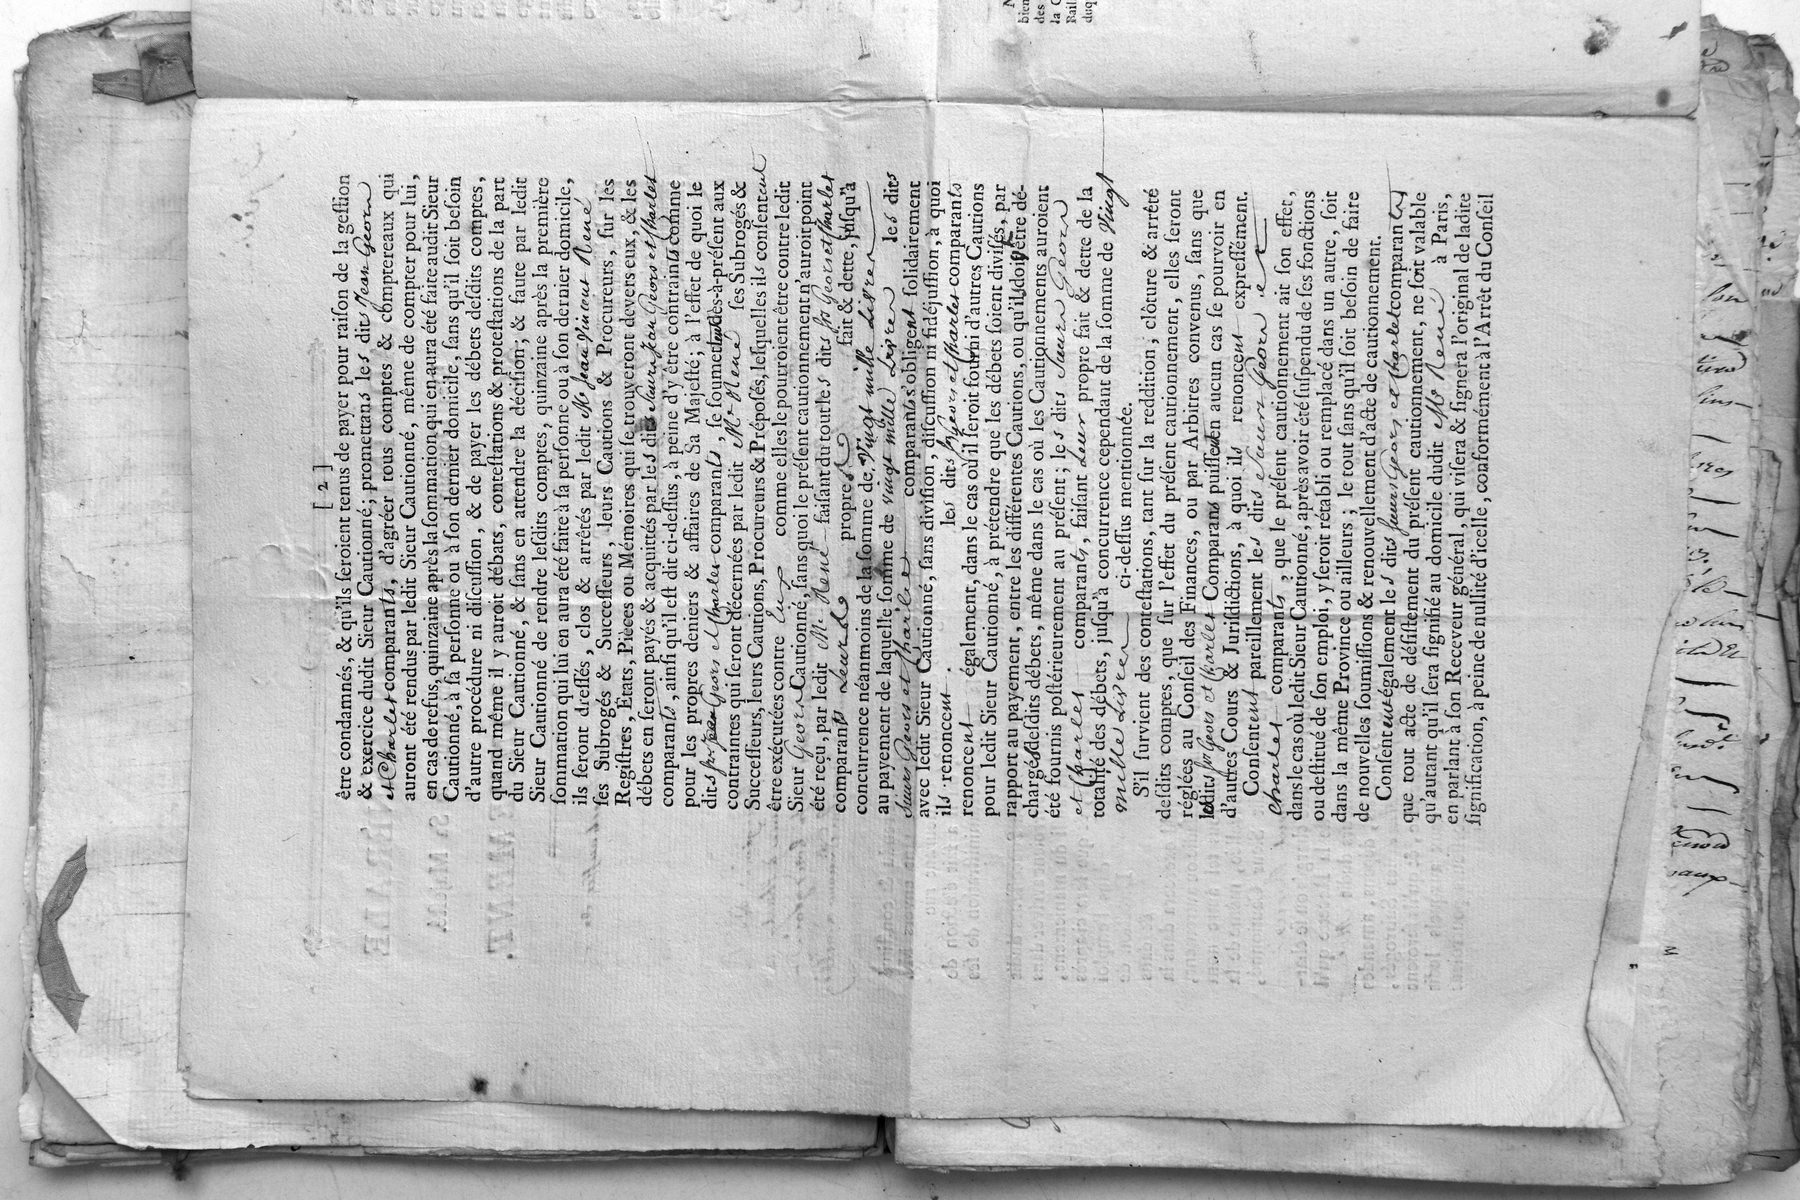 [ 2 ]
être condamnés, & qu'ils ſeroient tenus de payer pour raiſon de la geſtion
& exercice dudit Sieur Cautionné; promettans les dits Jean Geors
et Charles comparants, d'agréer tous comptes & comptereaux qui
auront été rendus par ledit Sieur Cautionné, même de compter pour lui,
en cas de refus, quinzaine après la ſommation qui en aura été faite audit Sieur
Cautionné, à ſa perſonne ou à ſon dernier domicile, ſans qu'il ſoit beſoin
d'autre procédure ni diſcuſſion, & de payer les débets deſdits comptes,
quand même il y auroit débats, conteſtations & proteſtations de la part
du Sieur Cautionné, & ſans en attendre la déciſion; & faute par ledit
Sieur Cautionné de rendre leſdits comptes, quinzaine après la première
ſommation qui lui en aura été faite à ſa perſonne ou à ſon dernier domicile,
ils ſeront dreſſés, clos & arrêtés par ledit Mr Jean Vincent René
ſes Subrogés & Succeſſeurs, leurs Cautions & Procureurs, ſur les
Regiſtres, Etats, Pièces ou Mémoires qui ſe trouveront devers eux, & les
débets en ſeront payés & acquittés par les dits Sieurs Jean Geors et Charles
comparants, ainſi qu'il eſt dit ci-deſſus, à peine d'y être contraints comme
pour les propres deniers & affaires de Sa Majeſté; à l'effet de quoi le
dits Jean Geors et Charles comparants, ſe ſoumettent dès-à-préſent aux
contraintes qui ſeront décernées par ledit Mr René ſes Subrogés &
Succeſſeurs, leurs Cautions, Procureurs & Prépoſés, leſquelles ils conſentent
être exécutées contre eux comme elles le pourroient être contre ledit
Sieur Geors Cautionné, ſans quoi le préſent cautionnement n'auroit point
été reçu, par ledit Mr René faiſant du tout les dits Srs Geors et Charles
comparants Leur propre fait & dette, juſqu'à
concurrence néanmoins de la ſomme de Vingt mille Livres
au payement de laquelle ſomme de vingt mille Livres les dits
Sieurs Geors et Charles comparants s'obligent ſolidairement
avec ledit Sieur Cautionné, ſans diviſion, diſcuſſion ni fidéjuſſion, à quoi
ils renoncent. les dits Srs Geors et Charles comparants
renoncent également, dans le cas où il ſeroit fourni d'autres Cautions
pour ledit Sieur Cautionné, à prétendre que les débets ſoient diviſés, par
rapport au payement, entre les différentes Cautions, ou qu'ils doivent être dé-
chargés deſdits débets, même dans le cas où les Cautionnements auroient
été fournis poſtérieurement au préſent; les dits Sieurs Geors
et Charles comparants, faiſant Leur propre fait & dette de la
totalité des débets, juſqu'à concurrence cependant de la ſomme de Vingt
mille Livres ci-deſſus mentionnée.
S'il ſurvient des conteſtations, tant ſur la reddition, clôture & arrêté
deſdits comptes, que ſur l'effet du préſent cautionnement, elles ſeront
réglées au Conſeil des Finances, ou par Arbitres convenus, ſans que
leſdits Srs Geors et Charles Comparans puiſſent en aucun cas ſe pourvoir en
d'autres Cours & Juriſdictions, à quoi ils renoncent expreſſément.
Conſentent pareillement les dits Sieurs Geors et
Charles comparants, que le préſent cautionnement ait ſon effet,
dans le cas où ledit Sieur Cautionné, après avoir été ſuſpendu de ſes fonctions
ou deſtitué de ſon emploi, y ſeroit rétabli ou remplacé dans un autre, ſoit
dans la même Province ou ailleurs; le tout ſans qu'il ſoit beſoin de faire
de nouvelles ſoumiſſions & renouvellement d'acte de cautionnement.
Conſentent également les dits Sieurs Geors et Charles comparants
que tout acte de déſiſtement du préſent cautionnement, ne ſoit valable
qu'autant qu'il ſera ſignifié au domicile dudit Mr René à Paris,
en parlant à ſon Receveur général, qui viſera & ſignera l'original de ladite
ſignification, à peine de nullité d'icelle, conformément à l'Arrêt du Conſeil